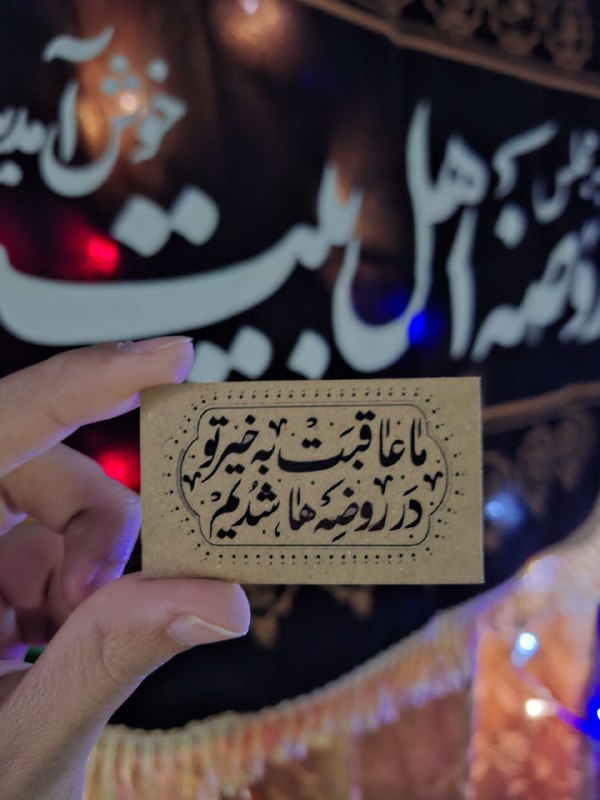 مجلس
روضه اهل بیت
خوش آمدید
ما عاقبت به خیر تو
در روضه ها شدیم